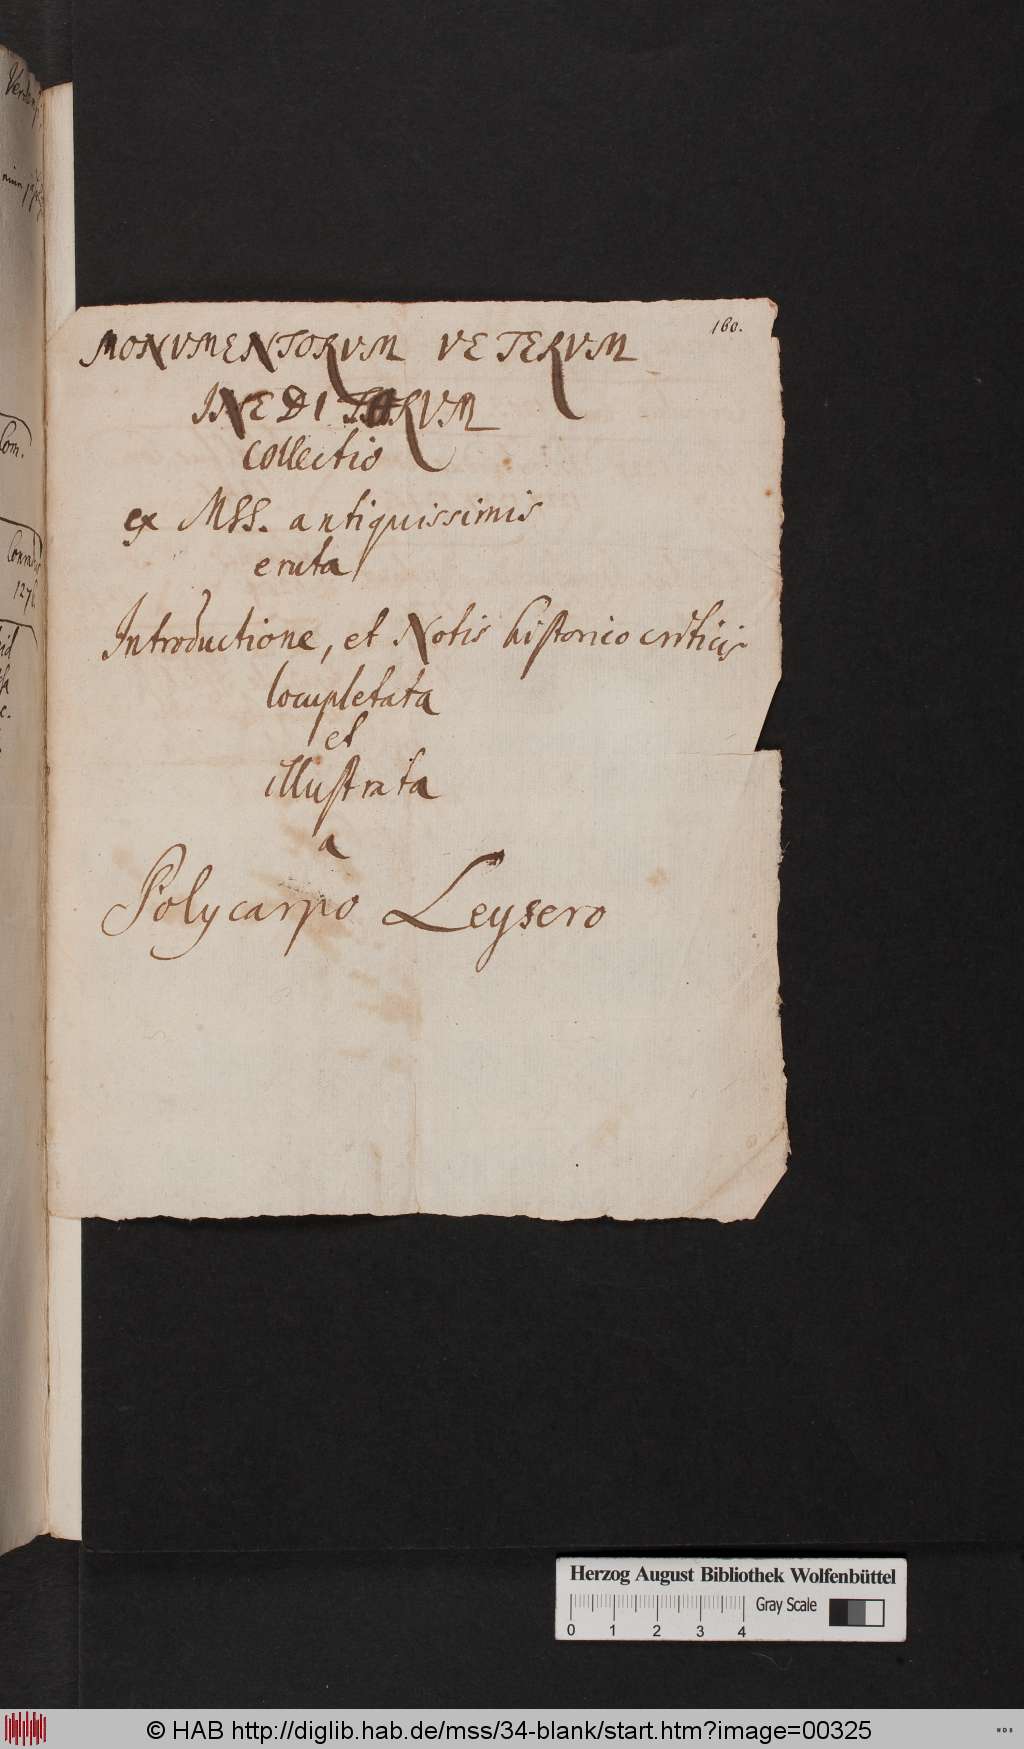 160.
MONVMENTORVM VETERVM
INEDITORVM
collectio
ex MSS. antiquissimis
eruta
Introductione, et Notis historico criticis
locupletata
et
illustrata
a
Polycarpo Leysero
Com.
127
Herzog August Bibliothek Wolfenbüttel
Gray Scale
0 1 2 3 4
© HAB http://diglib.hab.de/mss/34-blank/start.htm?image=00325